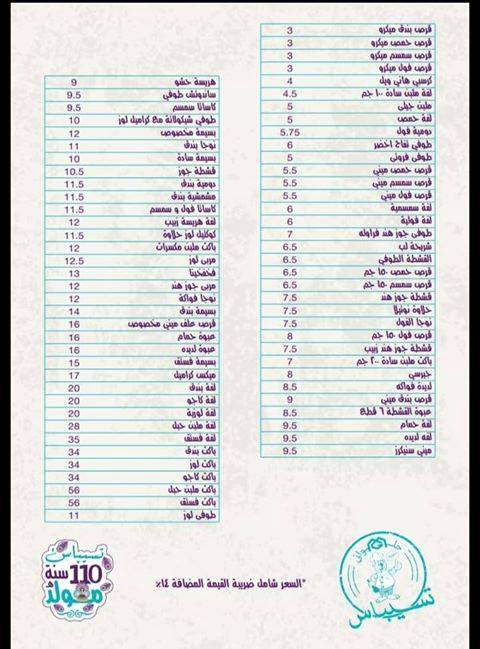 قرص بندق ميكرو 3
قرص حمص ميكرو 3
قرص سمسم ميكرو 3
قرص فول ميكرو 3
كرسبي هاني ويل 4
لفة ملبن سادة ١٠٠ جم 4.5
ملبن جيلى 5
لفة حمص 5
دومية فول 5.75
طوفي تفاح اخضر 6
طوفى فرولى 5
قرص حمص ميني 5.5
قرص سمسم ميني 5.5
قرص فول ميني 5.5
لفة سمسمية 6
لفة فولية 6
طوفى جوز هند فراوله 7
شريحة لب 6.5
القشطة الطوفي 6.5
قرص حمص ١٥٠ جم 6.5
قرص سمسم ١٥٠ جم 6.5
قشطة جوز هند 7.5
حلاوة نوتيلا 7.5
نوجا الفول 7.5
قرص فول ١٥٠ جم 8
قشطة جوز هند زبيب 7.5
باكت ملبن سادة ٢٠٠ جم 7
جبرسي 8
لديدة فواكه 8.5
قرص بندق ميني 9
عبوة القشطة ٦ قطع 8.5
لفة حمام 9.5
لفه لديده 9.5
ميني سنيكرز 9.5
هريسة حشو 9
ساندوتش طوفي 9.5
كاساتا سمسم 9.5
طوفي شيكولاتة مع كراميل لوز 10
بسيمة مخصوص 12
نوجا بندق 11
بسيمة سادة 10
قشطة جوز 10.5
دومية بندق 11.5
مشمشية بندق 11.5
كاساتا فول و سمسم 11.5
لفة هريسة زبيب 12
كوكتيل لوز حلاوة 11.5
باكت ملبن مكسرات 12
مربى لوز 12.5
فخفخينا 13
مربى جوز هند 12
نوجا فواكة 12
بسيمة بندق 14
قرص علف ميني مخصوص 16
عبوة حمام 16
عبوة لديده 16
بسيمة فستق 15
ميكس كراميل 17
لفة بندق 20
لفة كاجو 20
لفة لوزية 20
لفة ملبن حبل 28
لفة فستق 35
باكت بندق 34
باكت لوز 34
باكت كاجو 34
باكت ملبن حبل 56
باكت فستق 56
طوفى لوز 11
*السعر شامل ضريبة القيمة المضافة ١٤٪
تسيباس
110 سنة
مولد
تسيباس